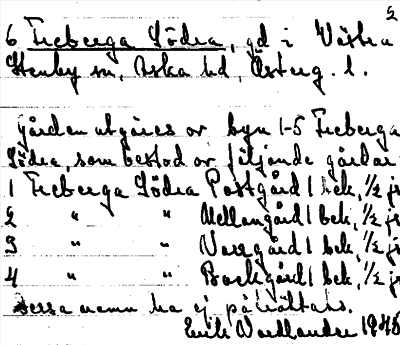 2
6 Freberga Södra, gd i Västra
Stenby sn, Aska hd, Österg. l.
Gården utgöres av byn 1-5 Freberga
Södra, som bestod av följande gårdar
1 Freberga Södra Postgård 1 hek, 1/2 je
2 " " Mellangård 1 bek, 1/2 je
3 " " Norrgård 1 bek, 1/2 je
4 " " Backgård 1 bek, 1/2 je
Dessa namn ha ej påträffats.
Erik Wadlander 1945